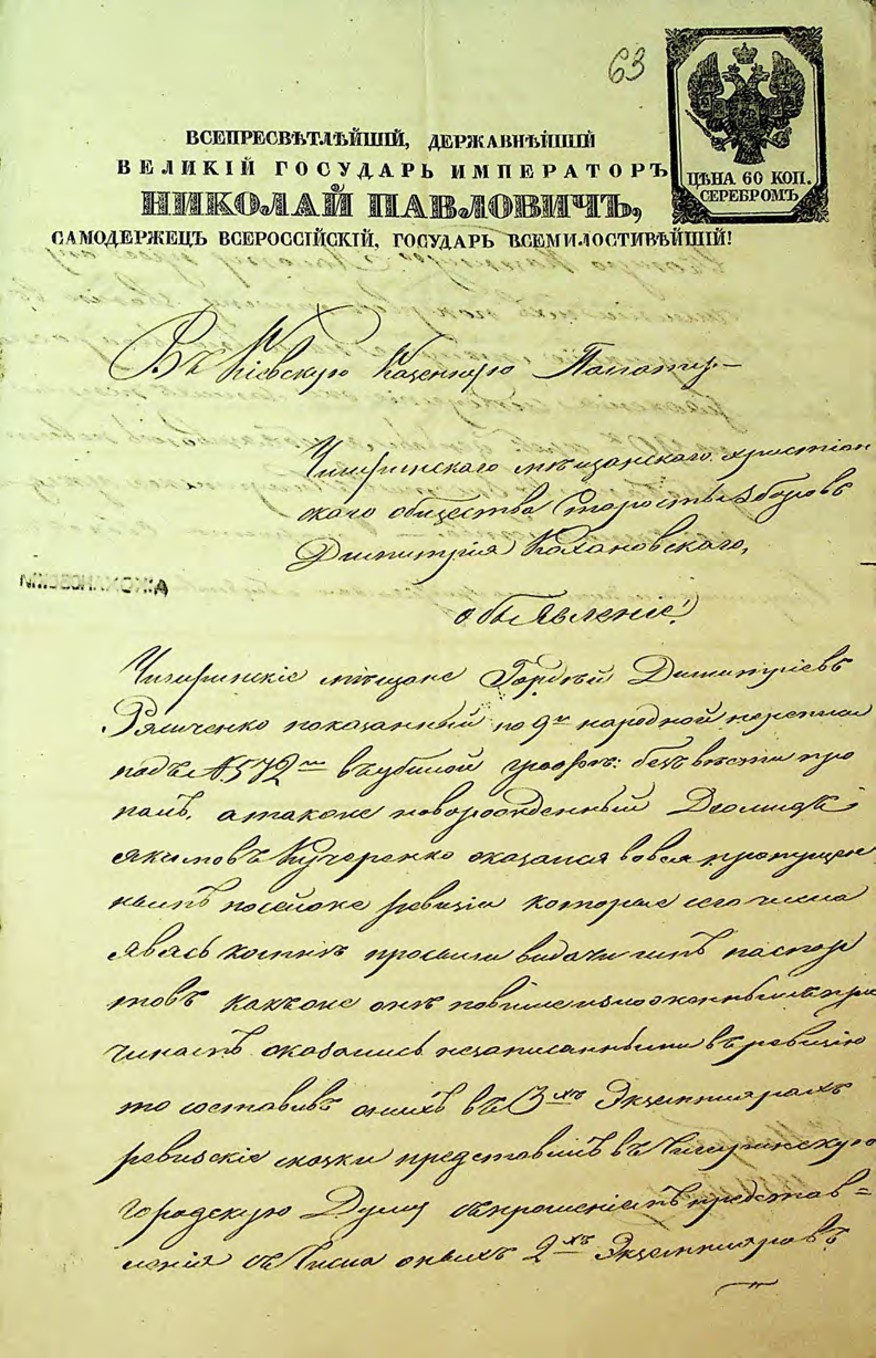 63
ЦѢНА 60 КОП.
СЕРЕБРОМЪ
ВСЕПРЕСВѢТЛѢЙШІЙ, ДЕРЖАВНѢЙШІЙ
ВЕЛИКІЙ ГОСУДАРЬ ИМПЕРАТОРЪ
НИКОЛАЙ ПАВЛОВИЧЪ,
САМОДЕРЖЕЦЪ ВСЕРОССІЙСКІЙ, ГОСУДАРЬ ВСЕМИЛОСТИВѢЙШІЙ!
Въ Кіевскую Казенную Палату
Чигиринскаго мѣщанскаго христіан
скаго общества Старосты Зборовъ
Димитрія Кохановскаго,
объявленіе!
Чигиринскіе мѣщане Гордѣй Димитріевъ
показанный по 9й народной переписи
подъ № 572мъ въ убылой графѣ: безъ вѣсти про
палъ, а также новорожденный
Якимовъ Кучеренко оказался вовся пропущен
нымъ по сейже ревизіи которые сего числа
явясь комнѣ просили видачи имъ паспор
товъ какъ же онѣ по више изложеннымъ при
чинамъ оказались незаписанными въ ревизію
то составивъ онихъ въ 3хъ Экземплярахъ
ревизскіе сказки представилъ въ Чигиринскую
Городскую Думу съ прошеніемъ представ=
ленія съ Числа оныхъ 2хъ Экземпляровъ